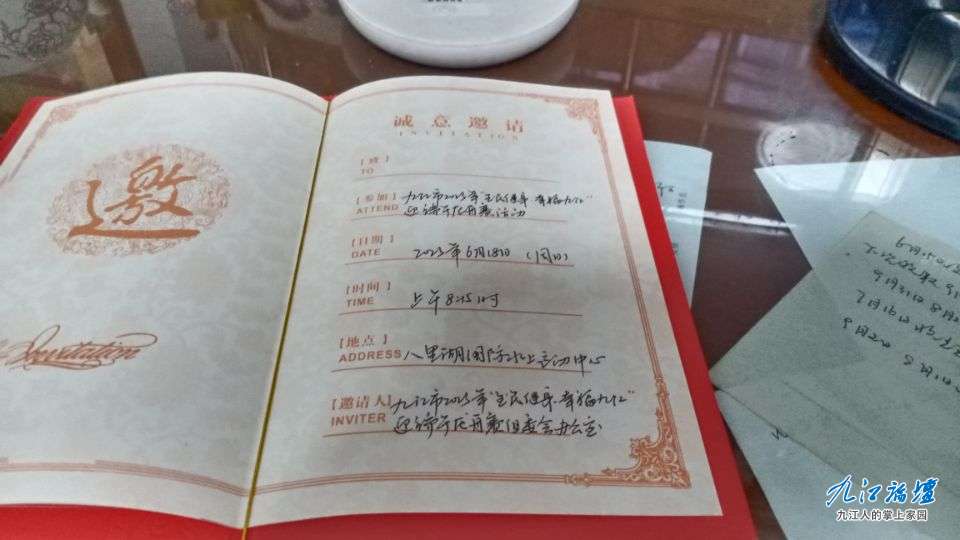 邀
Invitation
诚意邀请
INVITATION
[致]
TO
[参加]
ATTEND
九江市2023年"全民健身 幸福九江"
迎端午龙舟赛活动
[日期]
DATE
2023年6月18日(周日)
[时间]
TIME
上午8:45时
[地点]
ADDRESS
八里湖国际水上运动中心
[邀请人]
INVITER
九江市2023年"全民健身 幸福九江"
迎端午龙舟赛组委会办公室
9月31日8月2
7月16日
9月2日
九江论坛
九江人的掌上家园